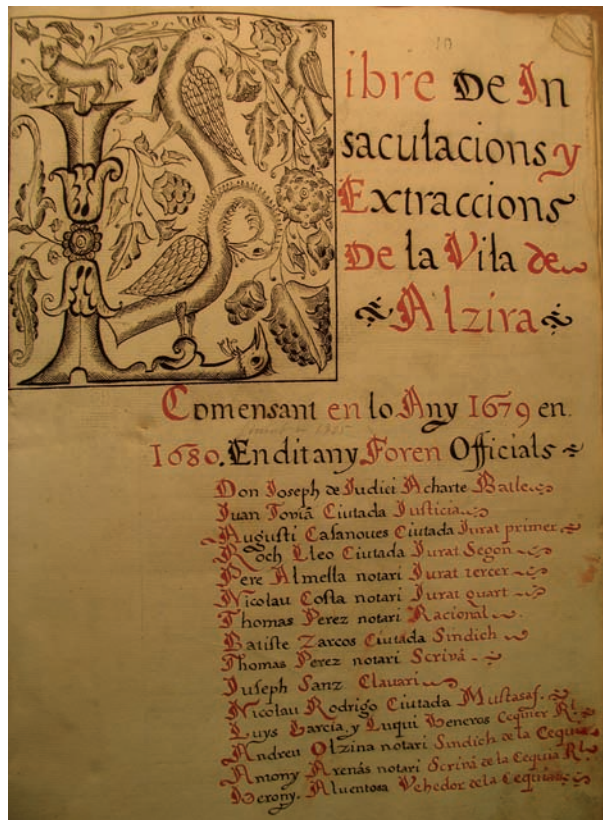 Libre De In
saculacions y
Extraccions
De la Vila de
Alzira
Comensant en lo Any 1679 en.
1680. En dit any Foren Officials
Don Joseph de Iudici Acharte Batle
Juan Tovia Ciutada Justicia
Augusti Casanoves Ciutada Jurat primer
Roch Lleo Ciutada Jurat Segon
Pere Almella notari Jurat tercer
Nicolau Costa notari Jurat quart
Thomas Perez notari Racional
Batiste Zarcos Ciutada Sindich
Thomas Perez notari Scrivà
Juseph Sanz Clavari
Nicolau Rodrigo Ciutada Mustasaf.
Luys Garcia, y Luqui Heneros Cequier Rl.
Andreu Olzina notari Sindich de la Cequia
Antony Arenás notari Scrivà de la Cequia Rl.
Herony. Aluentosa Vehedor de la Cequia